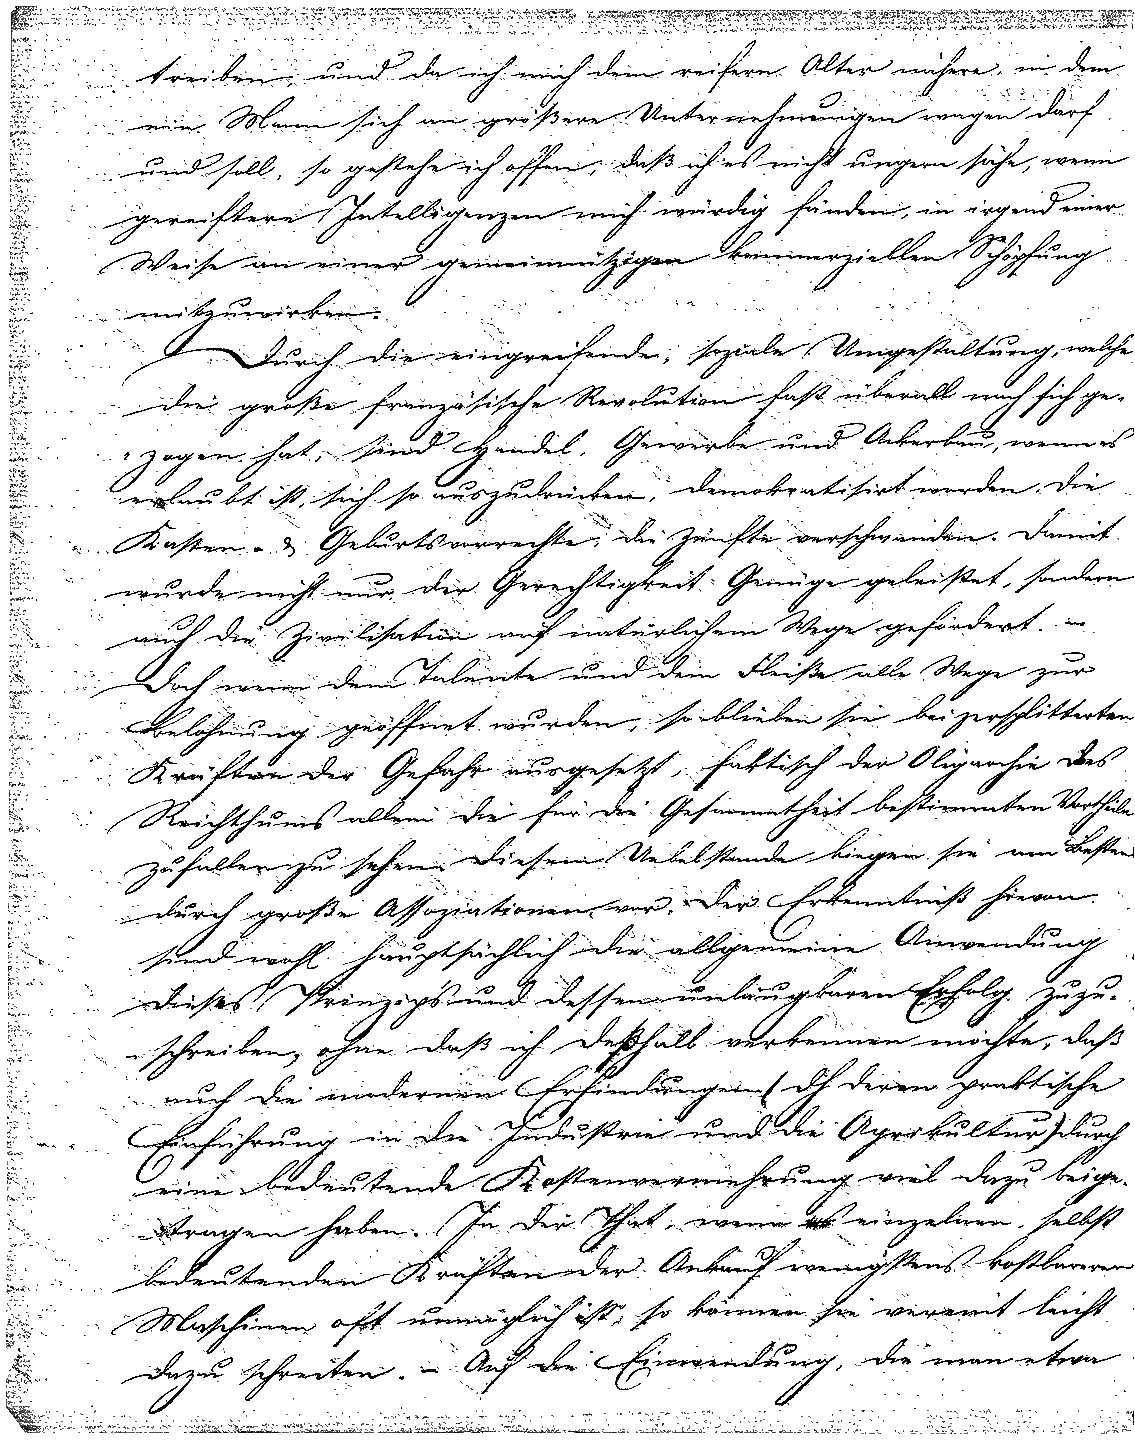 treiben, und da ich mich dem reifern Alter nähere, in dem
ein Mann sich an größere Unternehmungen wagen darf
und soll, so gestehe ich offen, daß ich es nicht ungern sähe, wenn
gereiftere Intelligenzen mich würdig fänden, in irgend einer
Weise an einer gemeinnützigen kommerziellen Schöpfung
mitzuwirken.
Durch die eingreifende, soziale Umgestaltung, welche
die große französische Revolution fast überall nach sich ge-
zogen hat, sind Handel, Gewerbe und Ackerbau, wenn es
erlaubt ist, sich so auszudrücken, demokratisirt worden. Die
Kasten- & Geburtsvorrechte, die Zünfte verschwanden. Damit
wurde nicht nur der Gerechtigkeit Genüge geleistet, sondern
auch die Zivilisation auf natürlichem Wege gefördert. –
Doch wenn dem Talente und dem Fleiße alle Wege zur
Belohnung geöffnet wurden, so blieben sie bei zersplitterten
Kräften der Gefahr ausgesetzt, faktisch der Oligarchie des
Reichthums allein die für die Gesammtheit bestimmten Vortheile
zufallen zu sehen. Diesem Uebelstande biegen sie am Besten
durch große Assoziationen vor. Der Erkenntniß hievon
sind wohl hauptsächlich die allgemeine Anwendung
dieses Prinzips und dessen unläugbaren Erfolg zuzu-
schreiben, ohne daß ich deßhalb verkennen möchte, daß
auch die modernen Erfindungen (dh deren praktische
Einführung in die Industrie und die Agrikultur) durch
eine bedeutende Kostenvermehrung viel dazu beige-
tragen haben. In der That, wenn es einzelnen, selbst
bedeutenden Kräften der Ankauf wenigstens kostbareren
Maschinen oft unmöglich ist, so können sie vereint leicht
dazu schreiten. – Auf die Einwendung, die man etwa